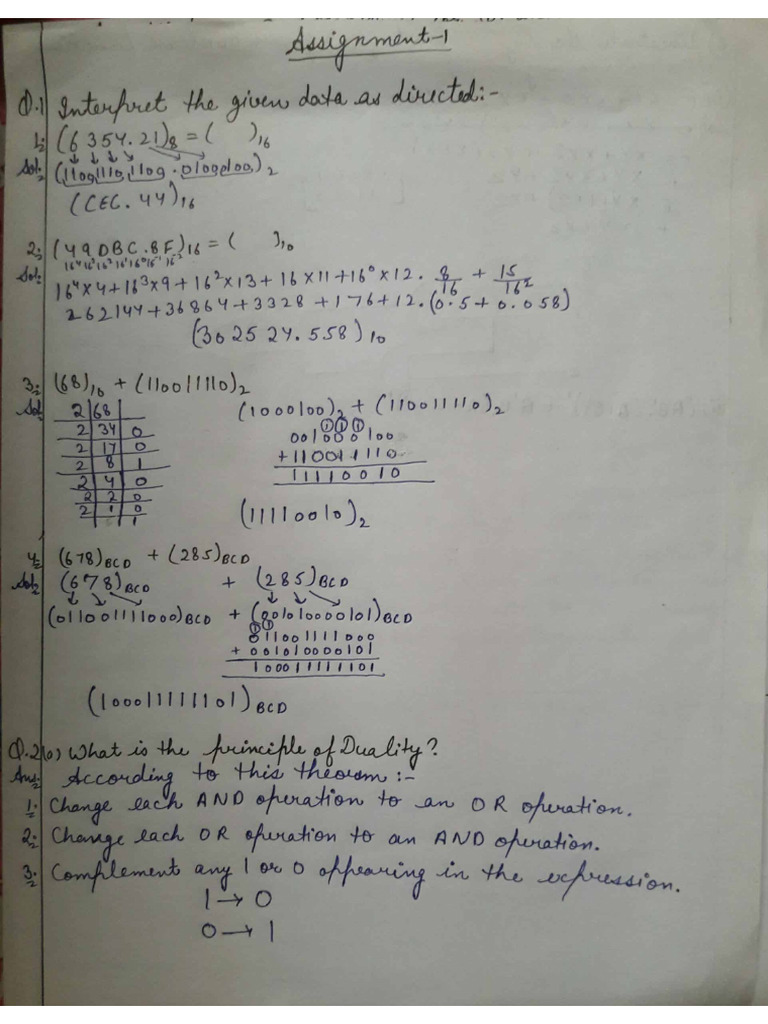 Assignment-1
Q.1 Interpret the given data as directed:-
1:- (6354.21)8 = ( )16
Sol:- (110011101100.010001 00)2
(CEC.44)16
2:- (49DBC.8F)16 = ( )10
16⁴ 16³ 16² 16¹ 16⁰ 16⁻¹ 16⁻²
Sol:- 16⁴×4+16³×9+16²×13+16×11+16⁰×12. 8/16 + 15/16²
262144+36864+3328+176+12.(0.5+0.058)
(302524.558)10
3:- (68)10 + (110011110)2
Sol:- (1000100)2 + (110011110)2
2 68
2 34 0
2 17 0
2 8 1
2 4 0
2 2 0
2 1 0
1
1 1 1
001000100
+110011110
11110010
(11110010)2
4:- (678)BCD + (285)BCD
Sol:- (678)BCD + (285)BCD
(011001111000)BCD + (001010000101)BCD
1 1
011001111000
+ 001010000101
100011111101
(100011111101)BCD
Q.2(a) What is the principle of Duality?
Ans:- According to this theorom :-
1:- Change each AND operation to an OR operation.
2:- Change each OR operation to an AND operation.
3:- Complement any 1 or 0 appearing in the expression.
1 → 0
0 → 1